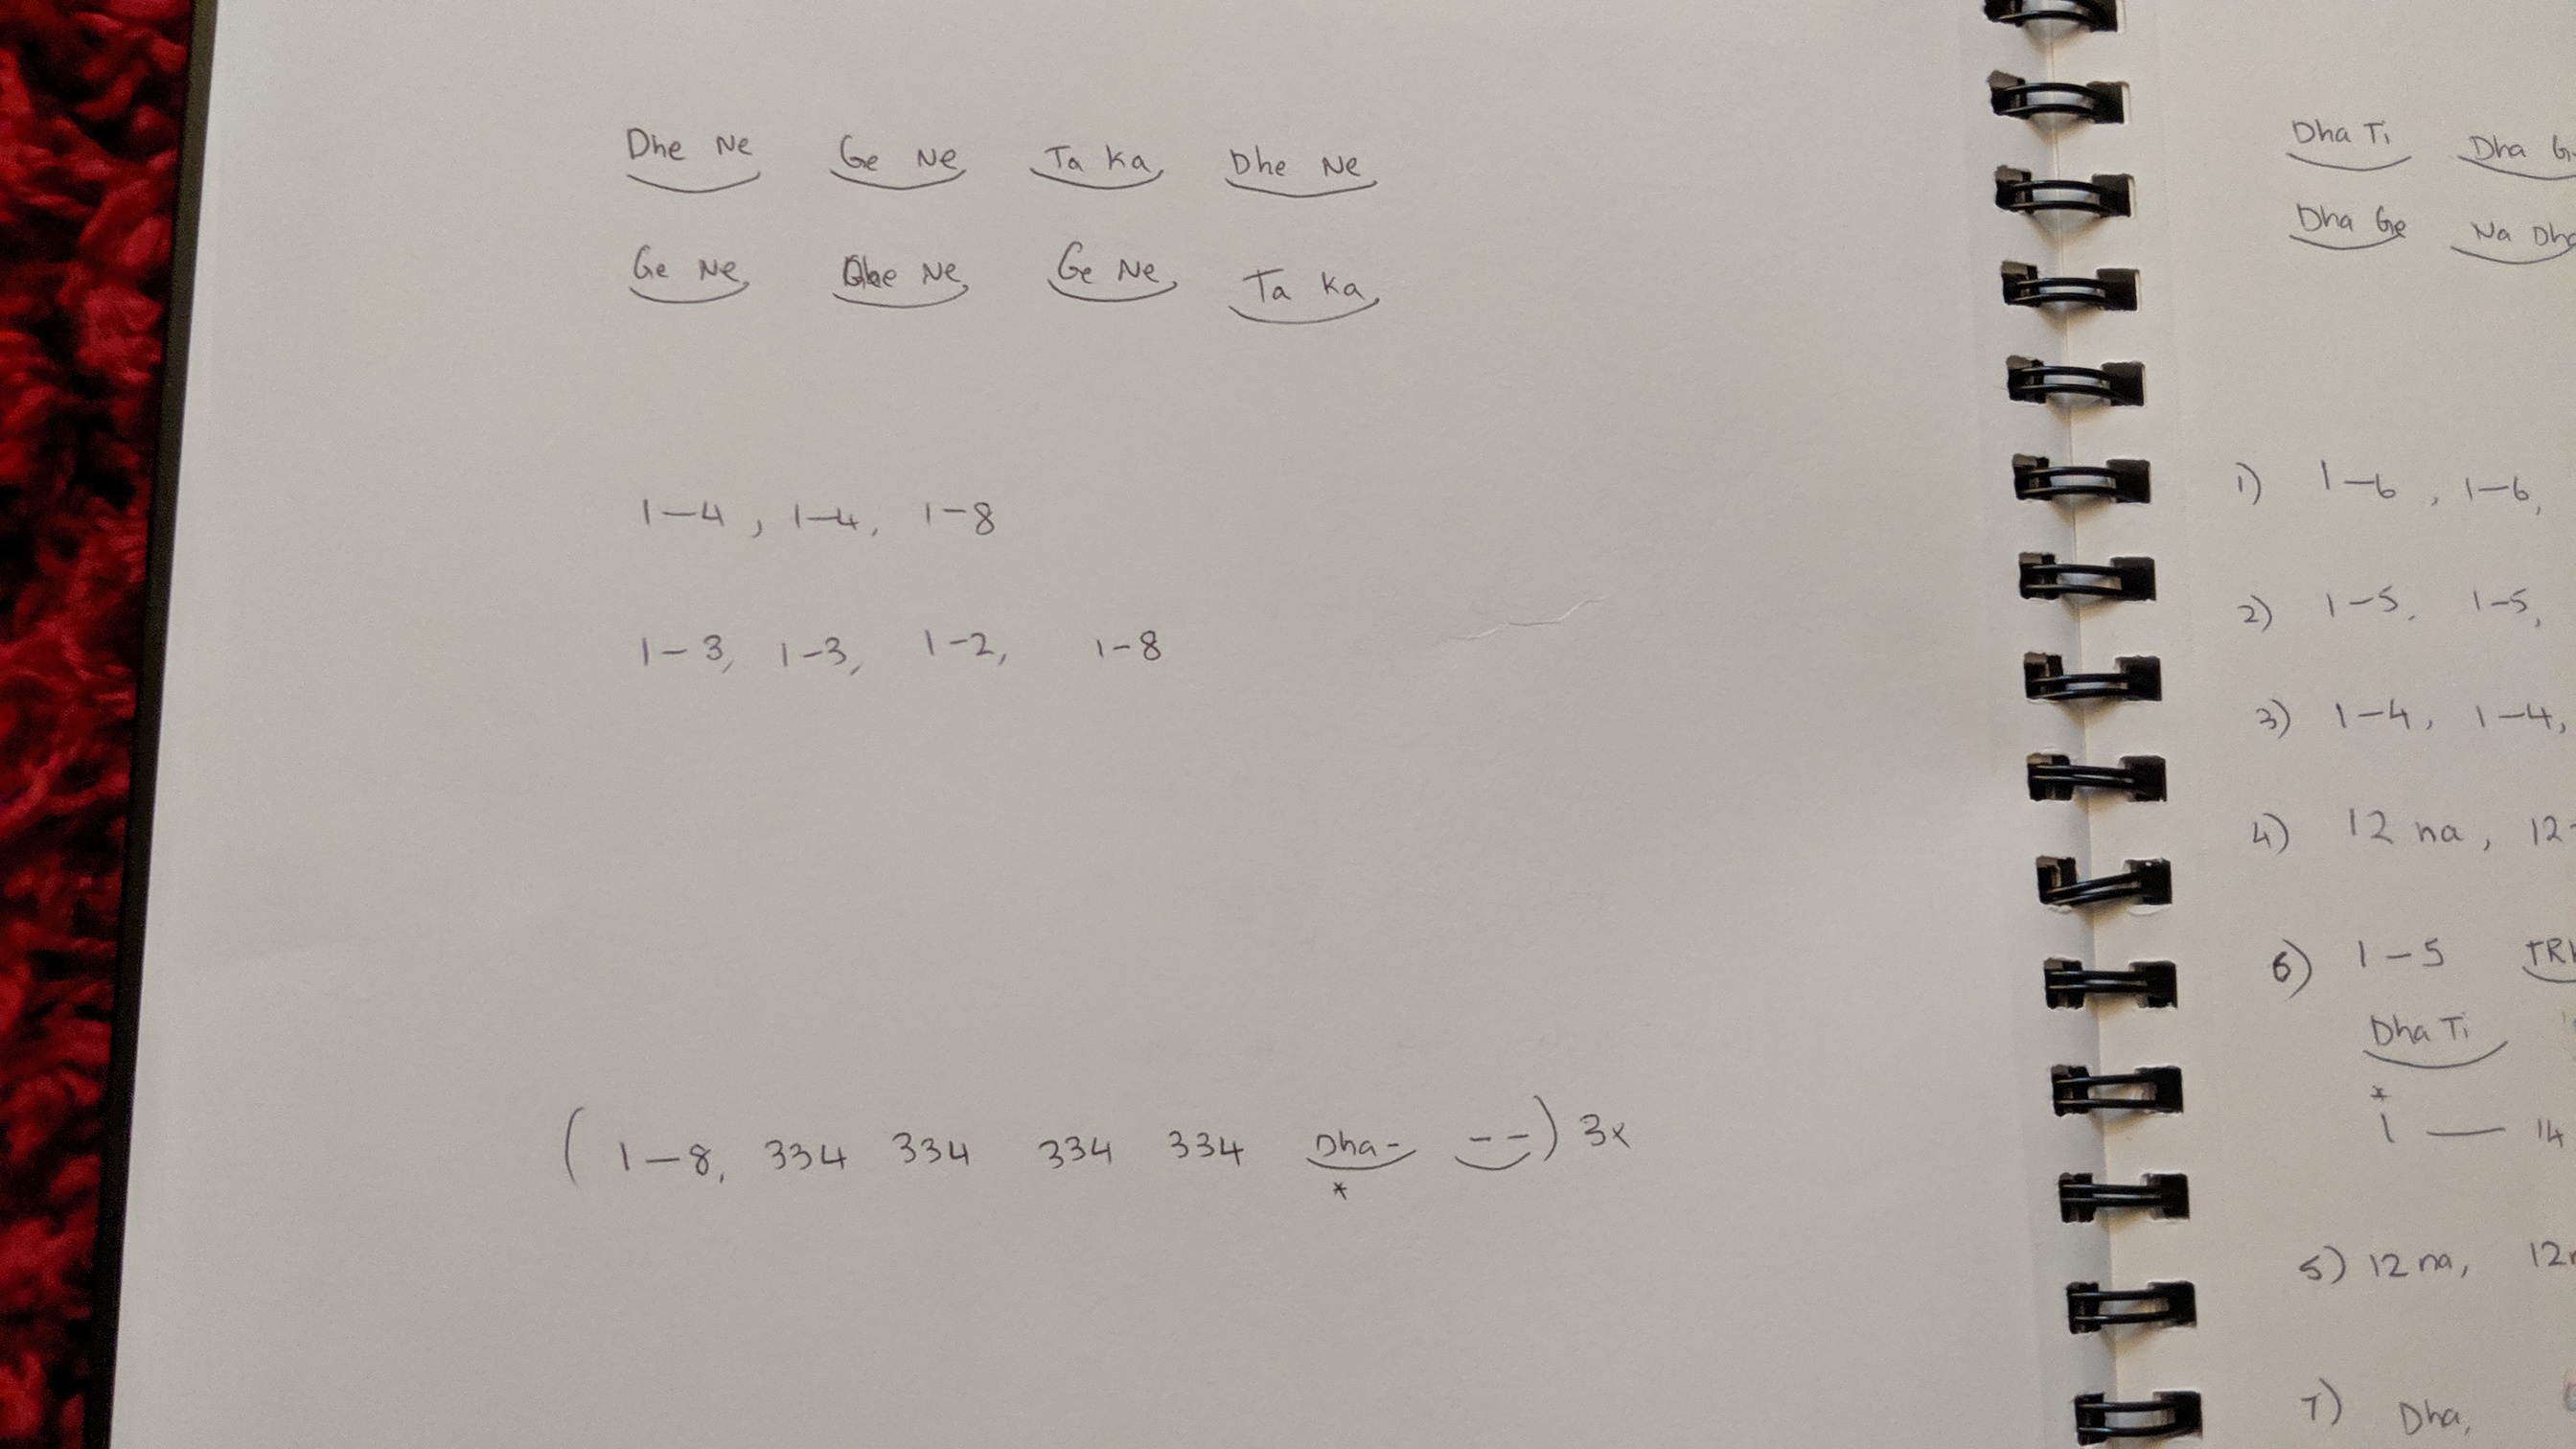 Dhe Ne Ge Ne Ta Ka Dhe Ne
Ge Ne Dhe Ne Ge Ne Ta Ka
1-4, 1-4, 1-8
1-3, 1-3, 1-2, 1-8
(1-8, 334 334 334 334 Dha- --) 3x
*
Dha Ti Dha
Dha Ge Na
1) 1-6, 1-6,
2) 1-5, 1-5,
3) 1-4, 1-4,
4) 12 na, 12
6) 1-5
Dha Ti
*
1 — 14
5) 12 na, 12
7) Dha,